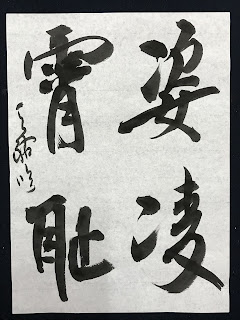 姿凌
霄耻